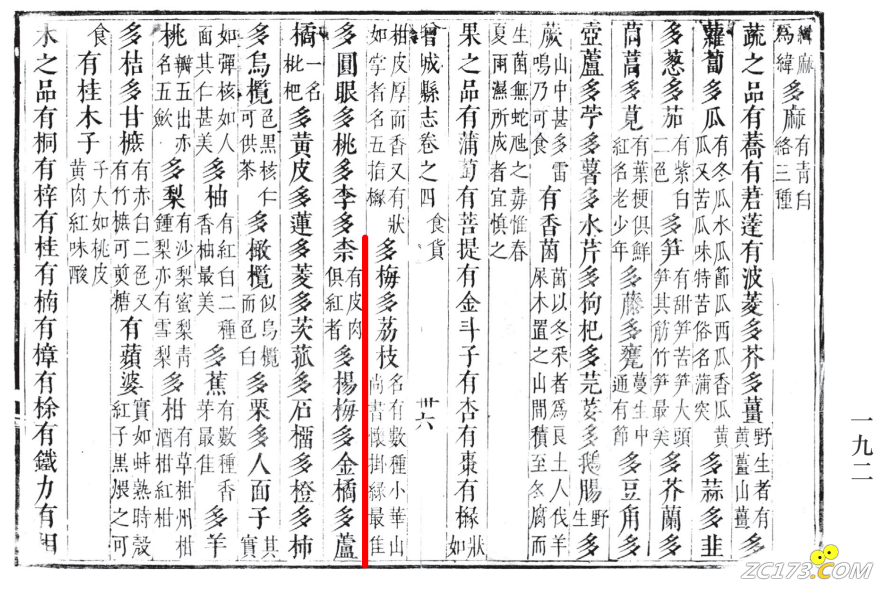 緝麻爲緯多麻有青白絡三種
蔬之品有蕎有莙蓬有波菱多芥多薑野生者有黃薑山薑多
蘿蔔多瓜有冬瓜水瓜節瓜西瓜香瓜黃瓜又苦瓜味特苦俗名蒲突多蒜多韭
多葱多茄有紫白二色多笋有甜笋苦笋大頭笋其筋竹笋最美多芥蘭多
茼蒿多莧有葉梗俱鮮紅名老少年多藤多蕹蔓生中通有節多豆角多
壺蘆多苧多薯多水芹多枸杞多芫荽多鵝腸野生多
蕨山中甚多雷鳴乃可食有香菌菌以冬采者爲良土人伐羊屎木置之山間積至冬腐而
生菌無蛇虺之毒惟春夏雨濕所成者宜慎之
果之品有蒲萄有菩提有金斗子有杏有棗有櫞狀如
曾城縣志卷之四 食貨 卅六
柑皮厚面香又有狀如字者名五指櫞多梅多荔枝名有數種小華山尚書懷掛綠最佳
多圓眼多桃多李多柰有皮肉俱紅者多楊梅多金橘多蘆
橘一名枇杷多黃皮多蓮多菱多茨菰多石橊多橙多柿
多烏欖色黑核仁可供茶多橄欖似烏欖而色白多栗多人面子其實
如彈核如人面其仁甚美多柚有紅白二種香柚最美多蕉有數種香芽最佳多羊
桃瓣五出亦名五斂多梨有沙梨蜜梨青鍾梨亦有雪梨多柑有草柑州柑酒柑紅柑
多桔多甘樜有赤白二色又有竹樜可煎糖有蘋婆實如蚌熟時殼紅子黑煨之可
食有桂木子子大如桃皮黃肉紅味酸
木之品有桐有梓有桂有楠有樟有有鐵力有
一九二
ZC173.COM